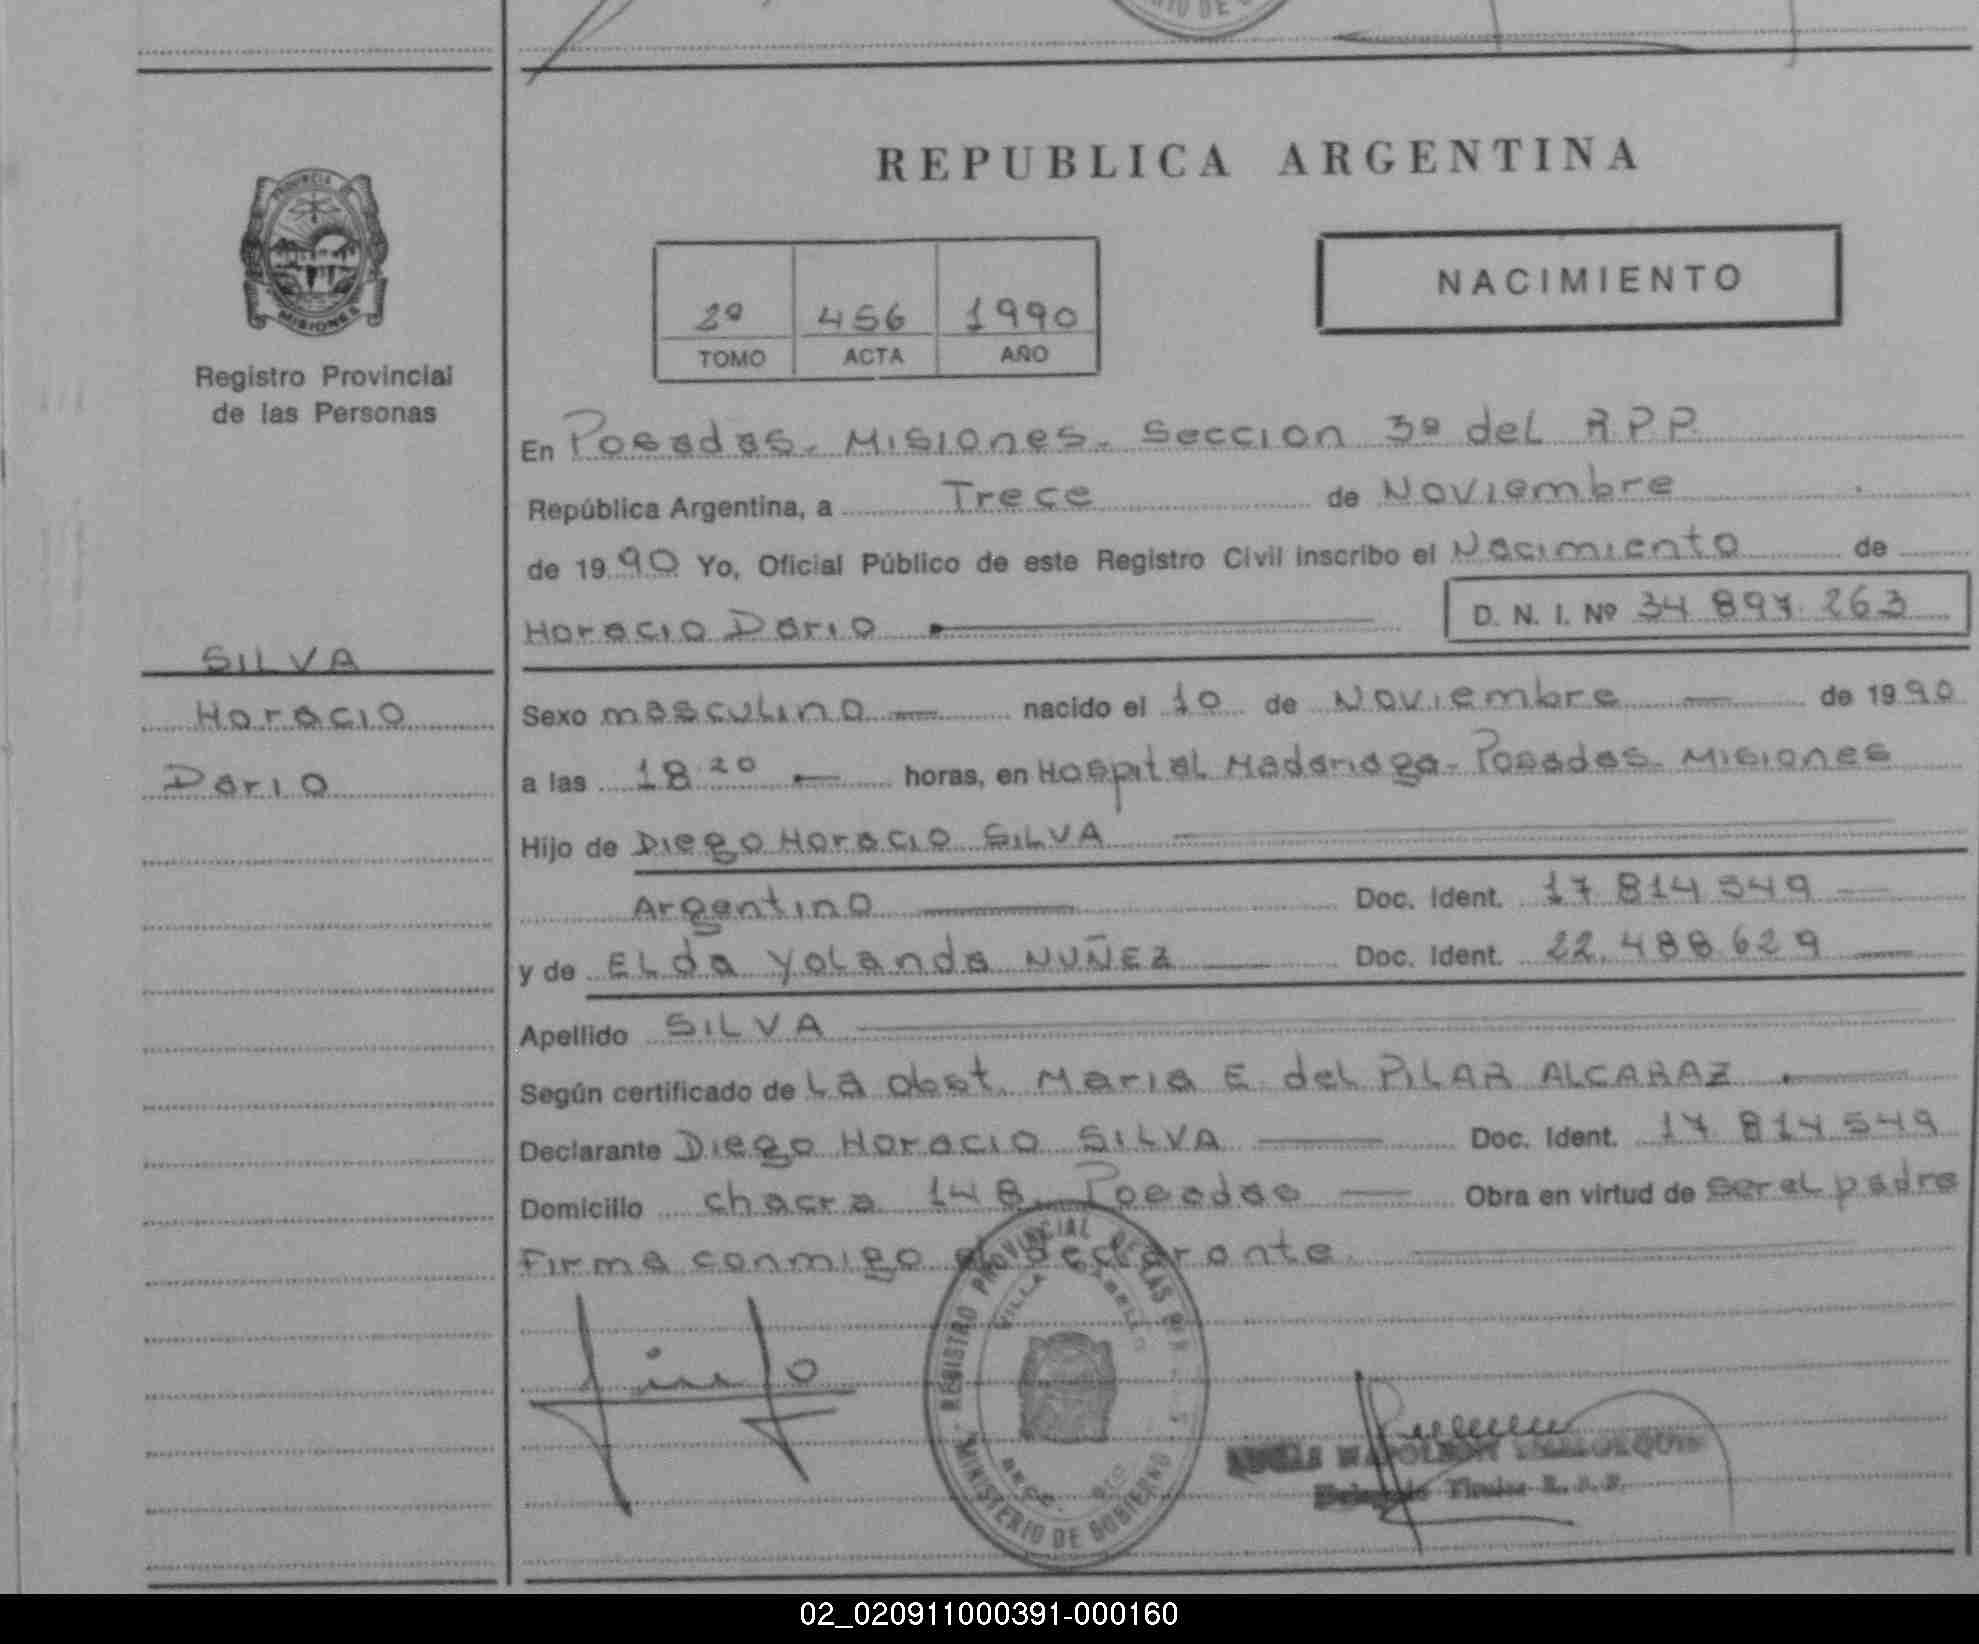 RIO DE
REPUBLICA ARGENTINA
PROVINCIA
MISIONES
Registro Provincial
de las Personas
NACIMIENTO
2º 456 1990
TOMO ACTA AÑO
En Posadas. Misiones. Seccion 3º del R P P.
República Argentina, a Trece de Noviembre
de 1990 Yo, Oficial Público de este Registro Civil inscribo el Nacimiento de
Horacio Dario D. N. I. Nº 34 897.263
SILVA
Horacio
Dario
Sexo masculino nacido el 10 de Noviembre de 1990
a las 18 20 horas, en Hospital Madariaga. Posadas. Misiones
Hijo de Diego Horacio SILVA
Argentino Doc. Ident. 17 814 549
y de Elda Yolanda NUÑEZ Doc. Ident. 22.488 629
Apellido SILVA
Según certificado de La obst. Maria E. del PILAR ALCARAZ
Declarante Diego Horacio SILVA Doc. Ident. 17 814 549
Domicilio chacra 148 Posadas Obra en virtud de ser el padre
Firma conmigo el declarante.
REGISTRO PROVINCIAL DE LAS
VILLA CABELLO
MINISTERIO DE GOBIERNO
NAPOLEON
Titular
02_020911000391-000160